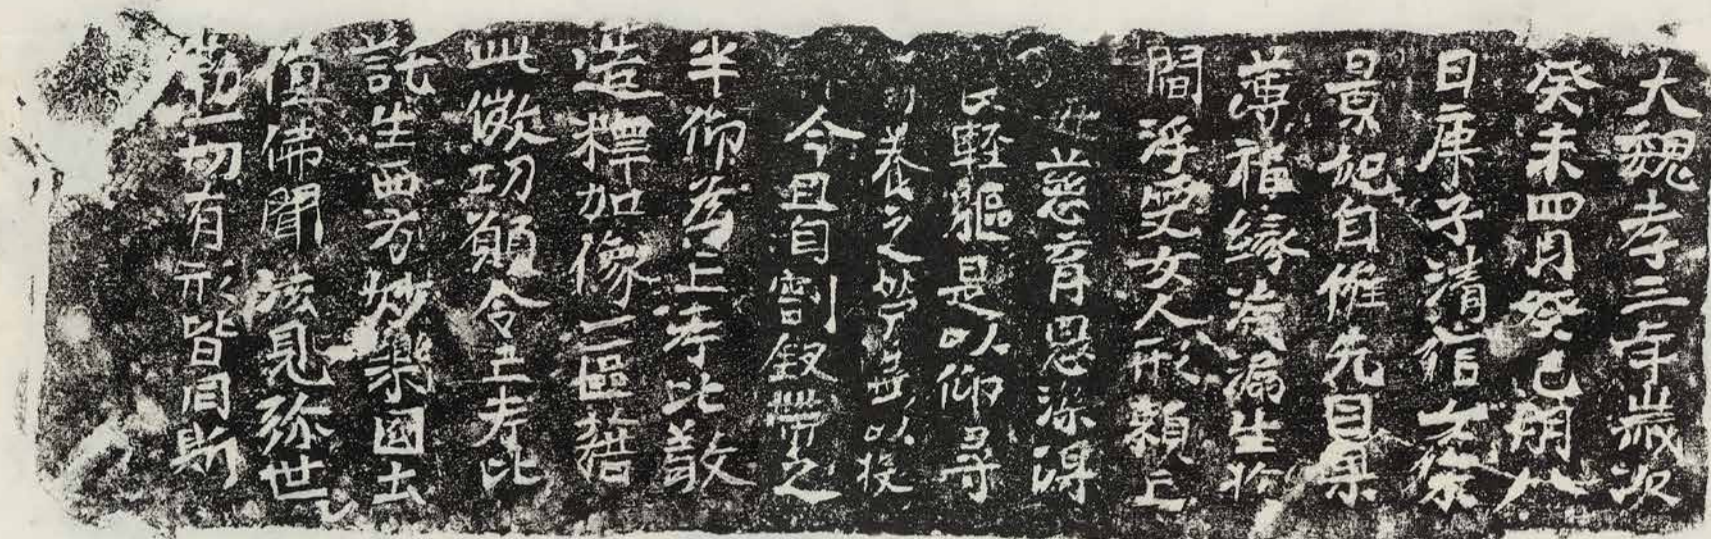 大魏孝三年歲次
癸未四月癸巳朔八
日庚子清信女宋
景妃自惟先因果
薄福緣淺漏生於
閻浮受女人形賴亡
慈育恩深得
輕軀是以仰尋
養之勞無以投
今且自割釵帶之
半仰為亡考比敬
造釋加像一區藉
此微功願令亡考比
託生西方妙樂國土
值佛聞法見弥世
勒一切有形皆同斯